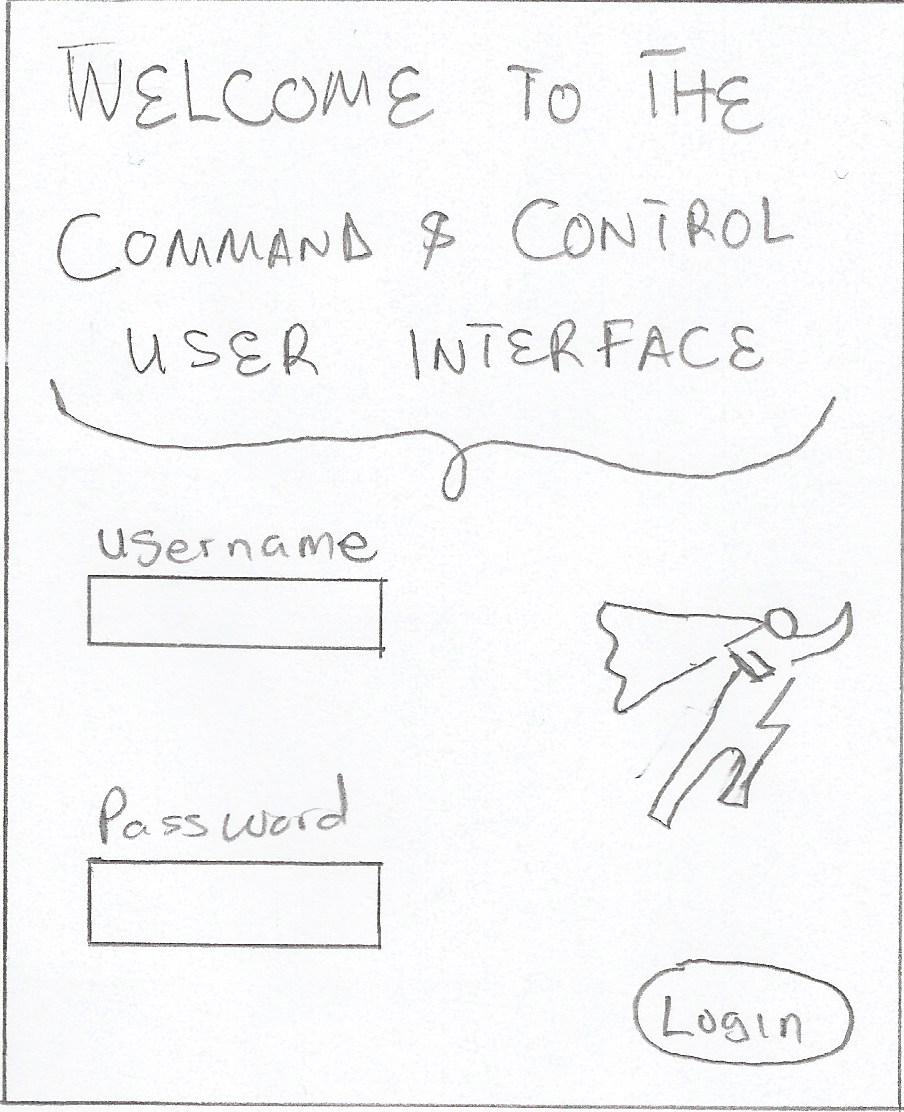 WELCOME TO THE
COMMAND & CONTROL
USER INTERFACE
username
Password
Login